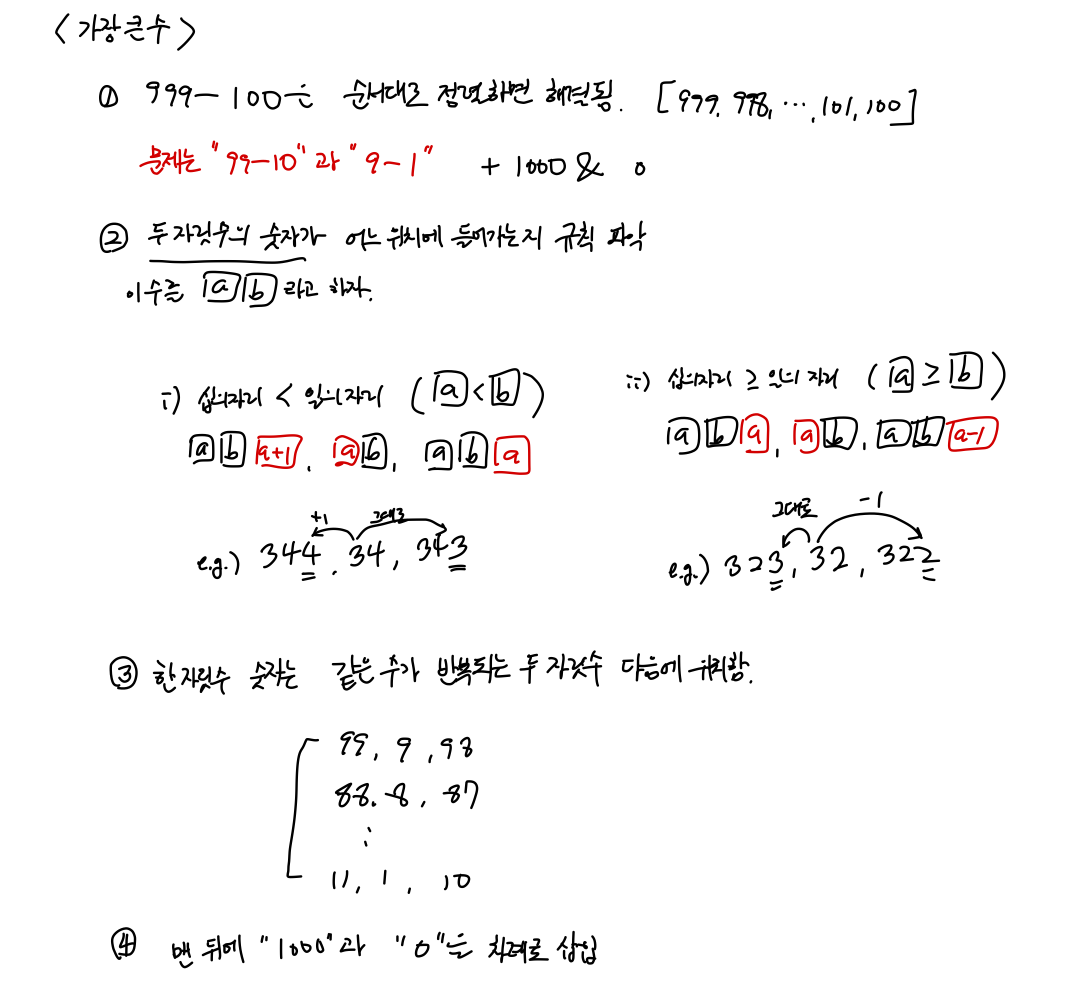 < 가장 큰 수 >
① 999-100은 순서대로 정렬하면 해결됨. [999, 998, ⋯, 101, 100]
문제는 "99-10"과 "9-1" + 1000 & 0
② 두 자릿수의 숫자가 어느 위치에 들어가는지 규칙 파악
이 수를 a b 라고 하자.
i) 십의자리 < 일의자리 (a < b)
a b a+1, a b, a b a
+1 그대로
e.g.) 344, 34, 343
ii) 십의자리 ≥ 일의 자리 (a ≥ b)
a b a, a b, a b a-1
그대로 -1
e.g.) 323, 32, 322
③ 한 자릿수 숫자는 같은 수가 반복되는 두 자릿수 다음에 위치함.
99, 9, 98
88, 8, 87
⋮
11, 1, 10
④ 맨 뒤에 "1000"과 "0"을 차례로 삽입